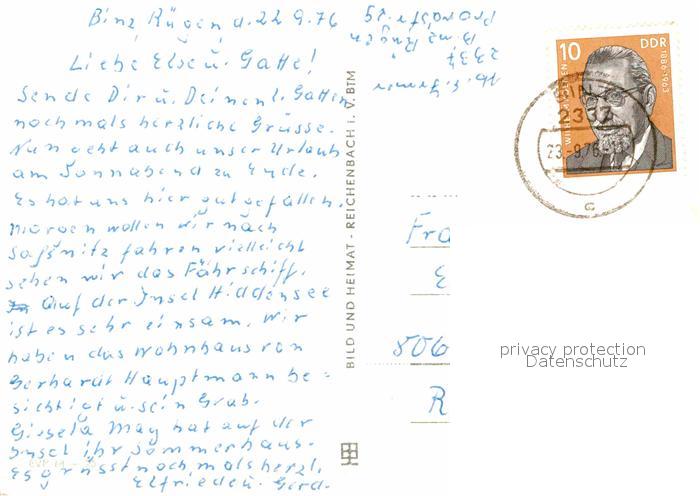 Binz, Rügen d. 22.9.76
Liebe Else u. Gatte!
Sende Dir u. Deinen l. Gatten
nochmals herzliche Grüsse.
Nun geht auch unser Urlaub
am Sonnabend zu Ende.
Es hat uns hier gut gefallen.
Morgen wollen wir nach
Saßnitz fahren vielleicht
sehen wir das Fährschiff.
Auf der Insel Hiddensee
ist es sehr einsam. Wir
haben das Wohnhaus von
Gerhardt Hauptmann be=
sichtigt u. sein Grab.
Gisela May hat auf der
Insel ihr Sommerhaus.
Es grüsst nochmals herzl.
Elfriede u. Gerd.
2337
Binz Rügen
BILD UND HEIMAT · REICHENBACH i. V. BIM
10
DDR
1886-1963
23.-9.76
c
Fra
E
806
R
privacy protection
Datenschutz